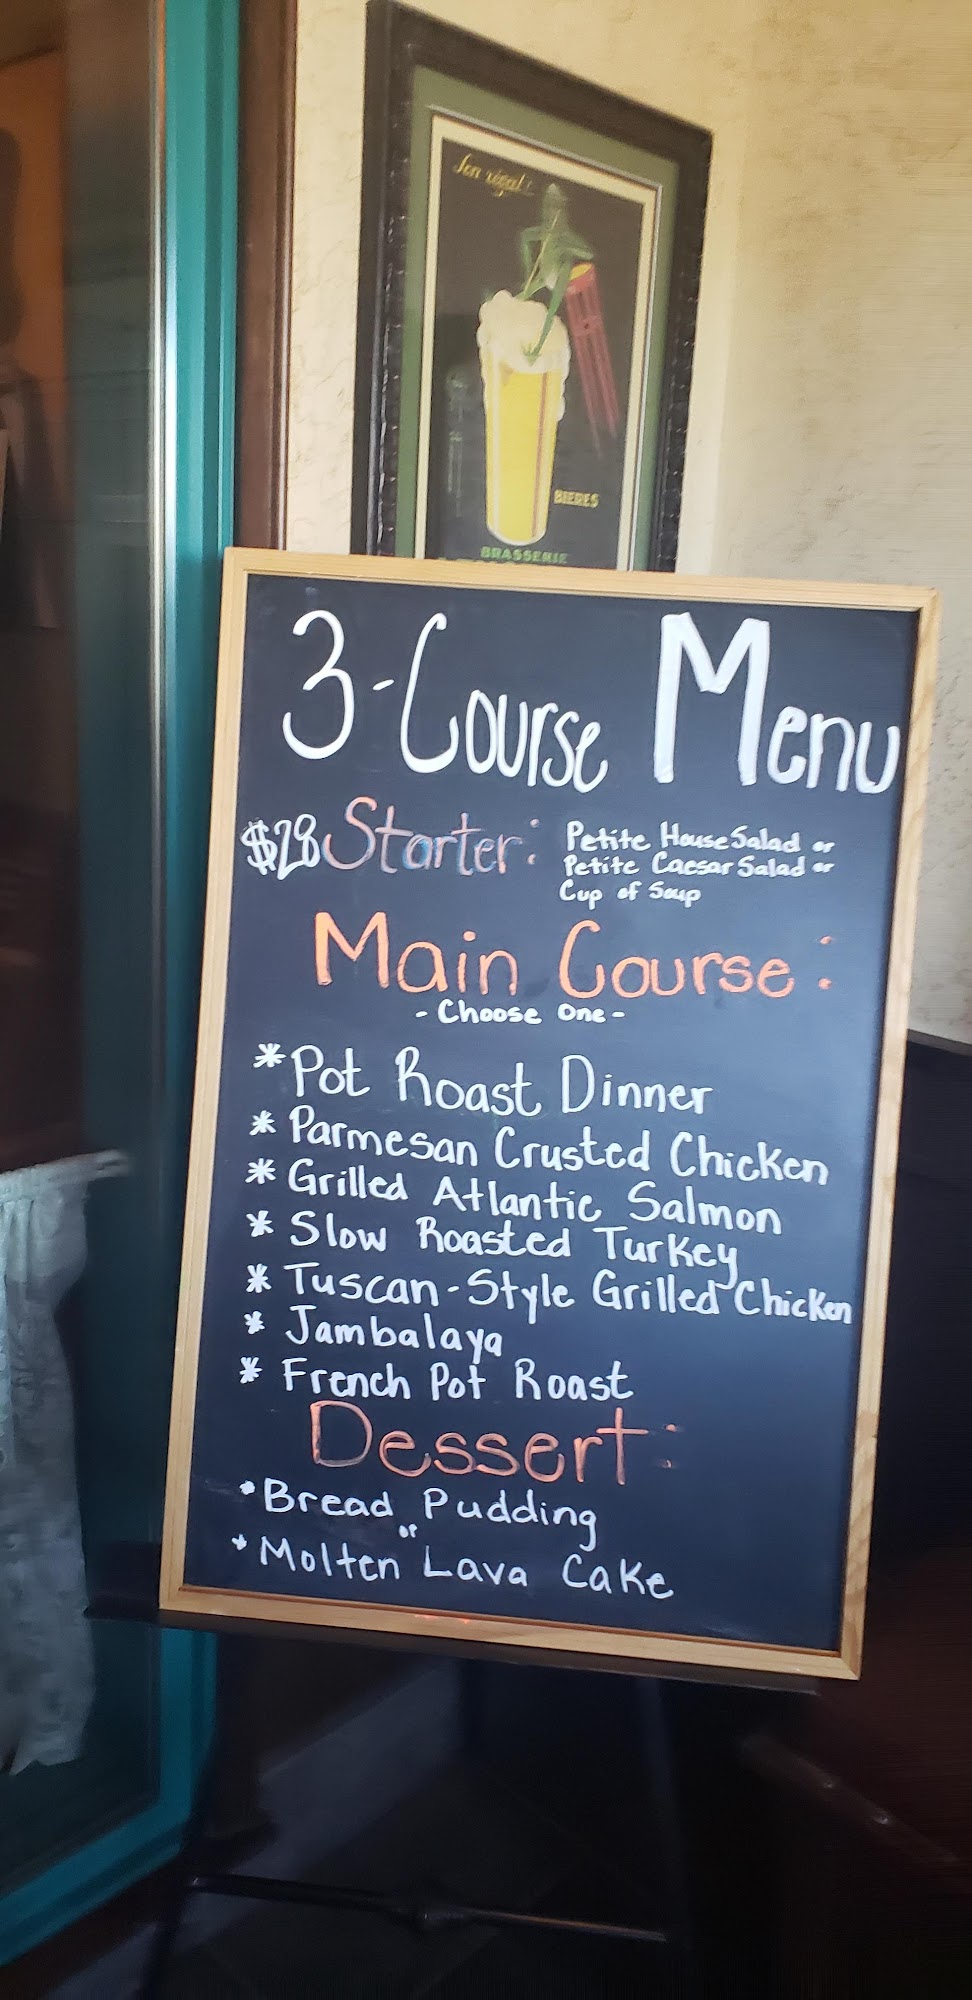 Son régal!
BIERES
BRASSERIE
3-Course Menu
$28 Starter: Petite House Salad or
Petite Caesar Salad or
Cup of Soup
Main Course:
- Choose One -
* Pot Roast Dinner
* Parmesan Crusted Chicken
* Grilled Atlantic Salmon
* Slow Roasted Turkey
* Tuscan-Style Grilled Chicken
* Jambalaya
* French Pot Roast
Dessert:
* Bread Pudding
or
* Molten Lava Cake